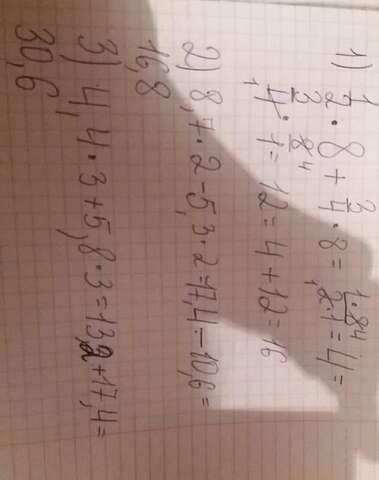 1) 1/2 · 8 + 3/4 · 8 = 1·8⁴/2·1 = 4 =
3/4 · 8/1 = 12 = 4 + 12 = 16
2) 8,7 · 2 - 5,3 · 2 = 17,4 - 10,6 =
16,8
3) 4,4 · 3 + 5,8 · 3 = 13,2 + 17,4 =
30,6